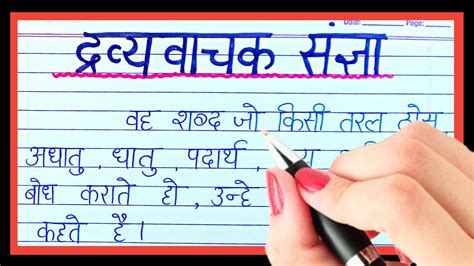 Date: Page:
द्रव्यवाचक संज्ञा
वह शब्द जो किसी तरल ठोस,
अधातु, धातु, पदार्थ,
बोध कराते हो, उन्हे
कहते है।